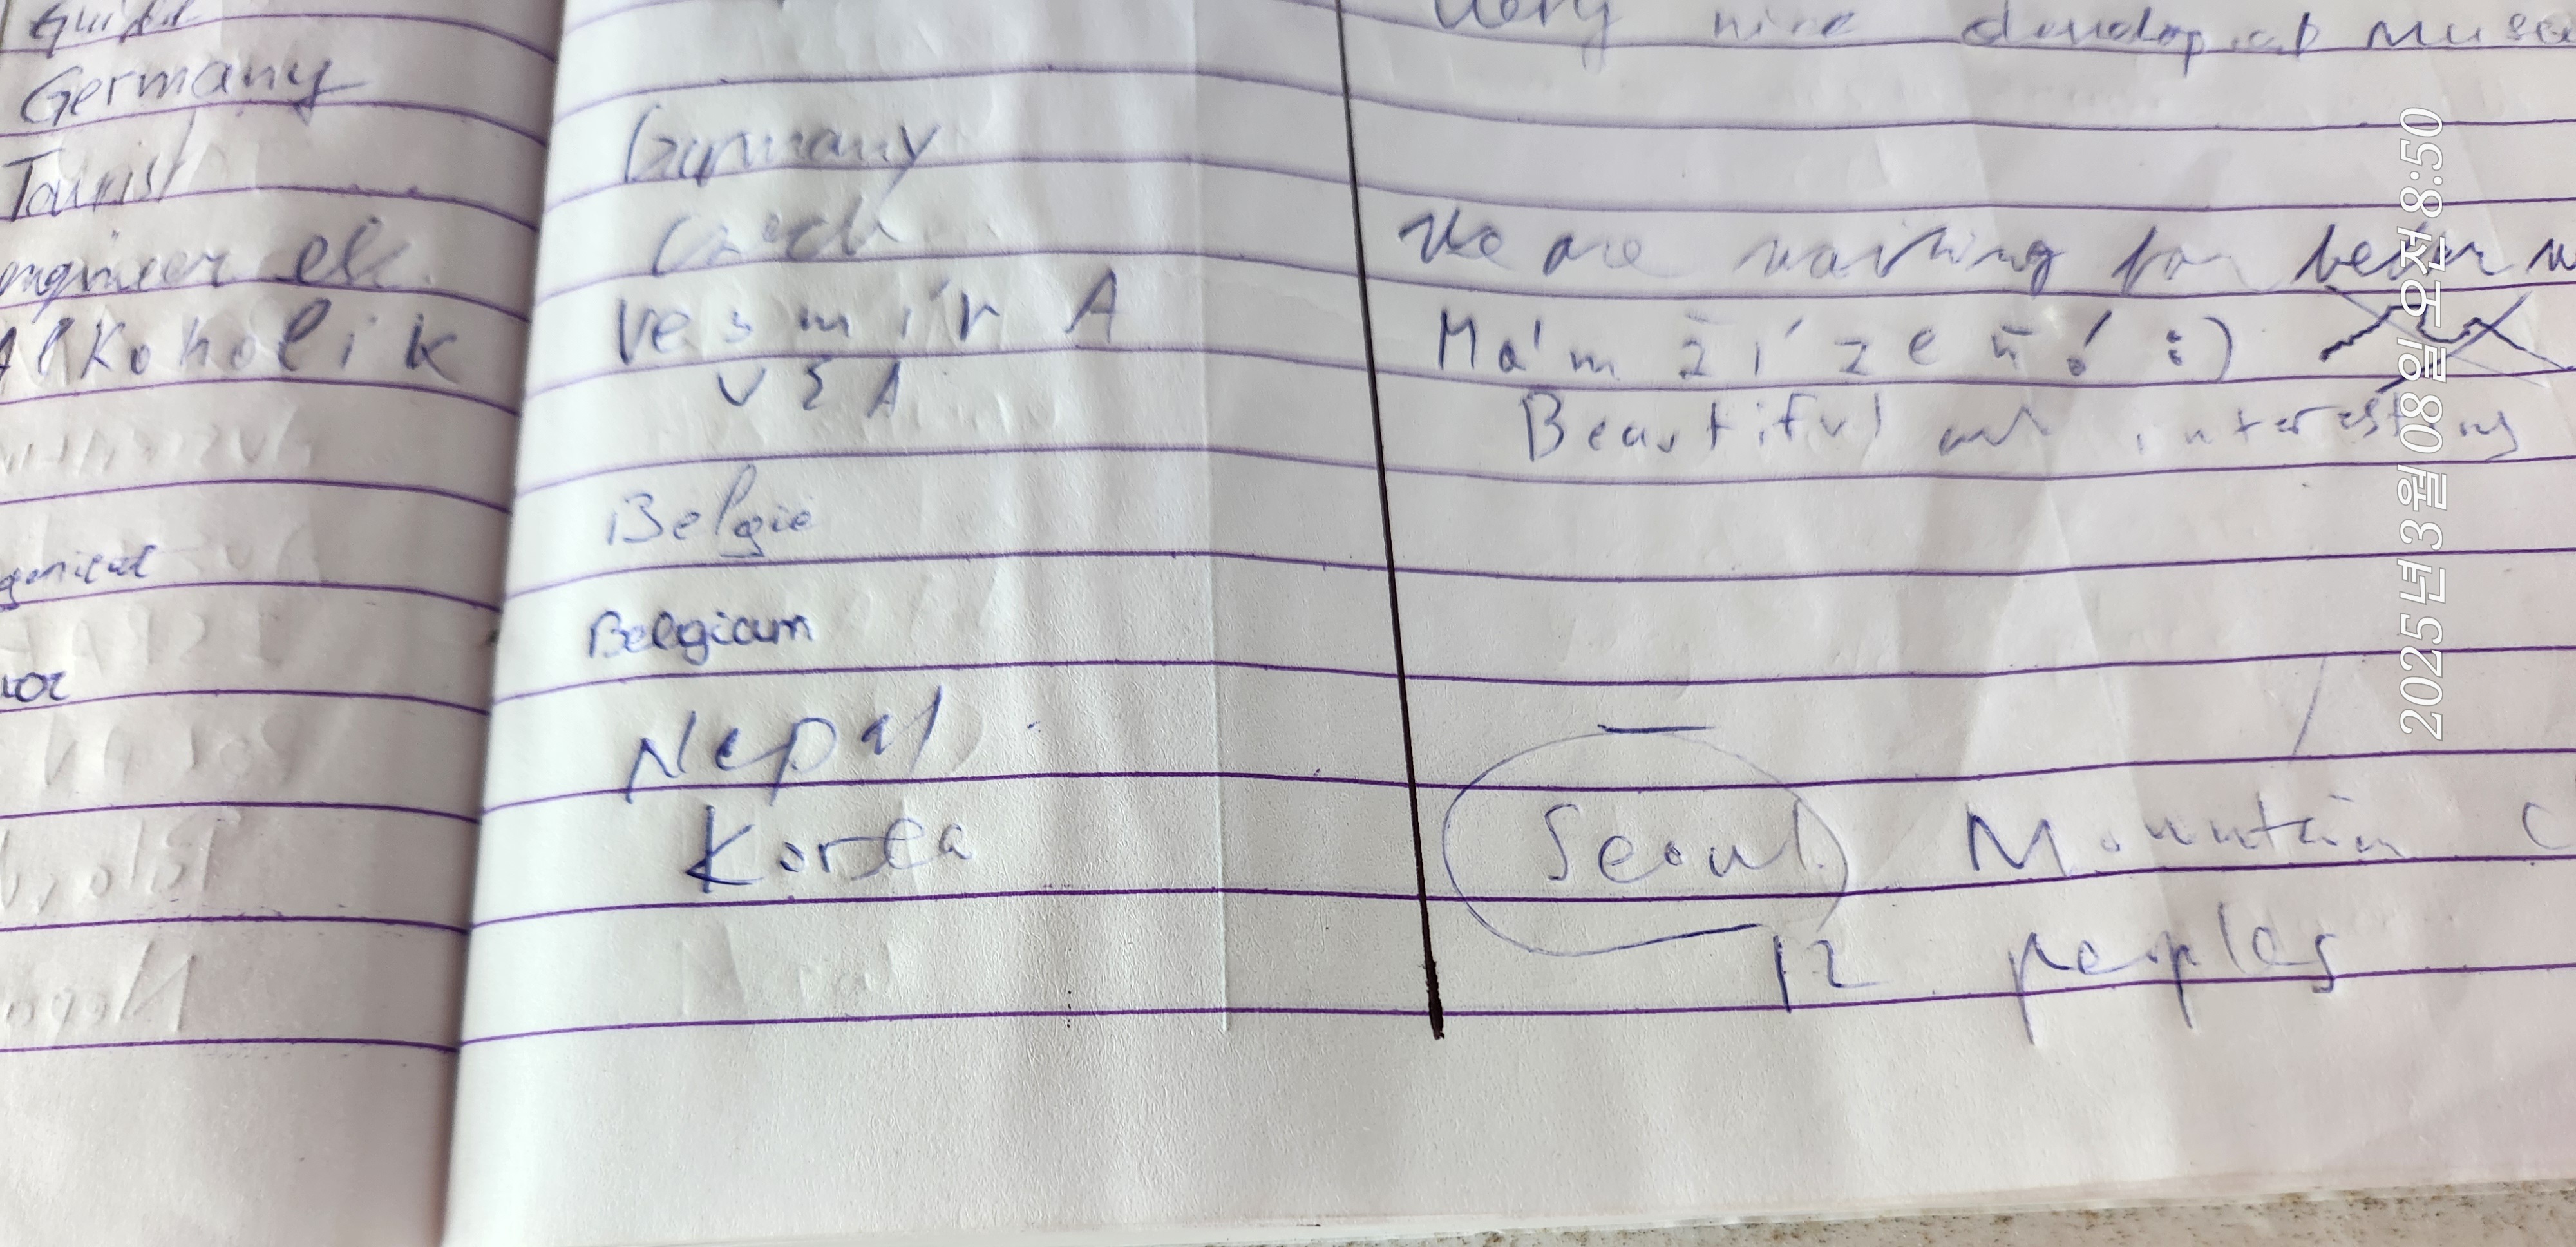 Guide
Very nice developed Muse
Germany
Germany
Tourist
Czech
We are waiting for better w
engineer el.
Vesmír A
Mám žízeň! :)
Alkoholik
USA
Beautiful and interesting
Belgie
Belgium
Nepal
Korea
Seoul Mountain C
12 peoples
2025년 3월 08일 오전 8:50